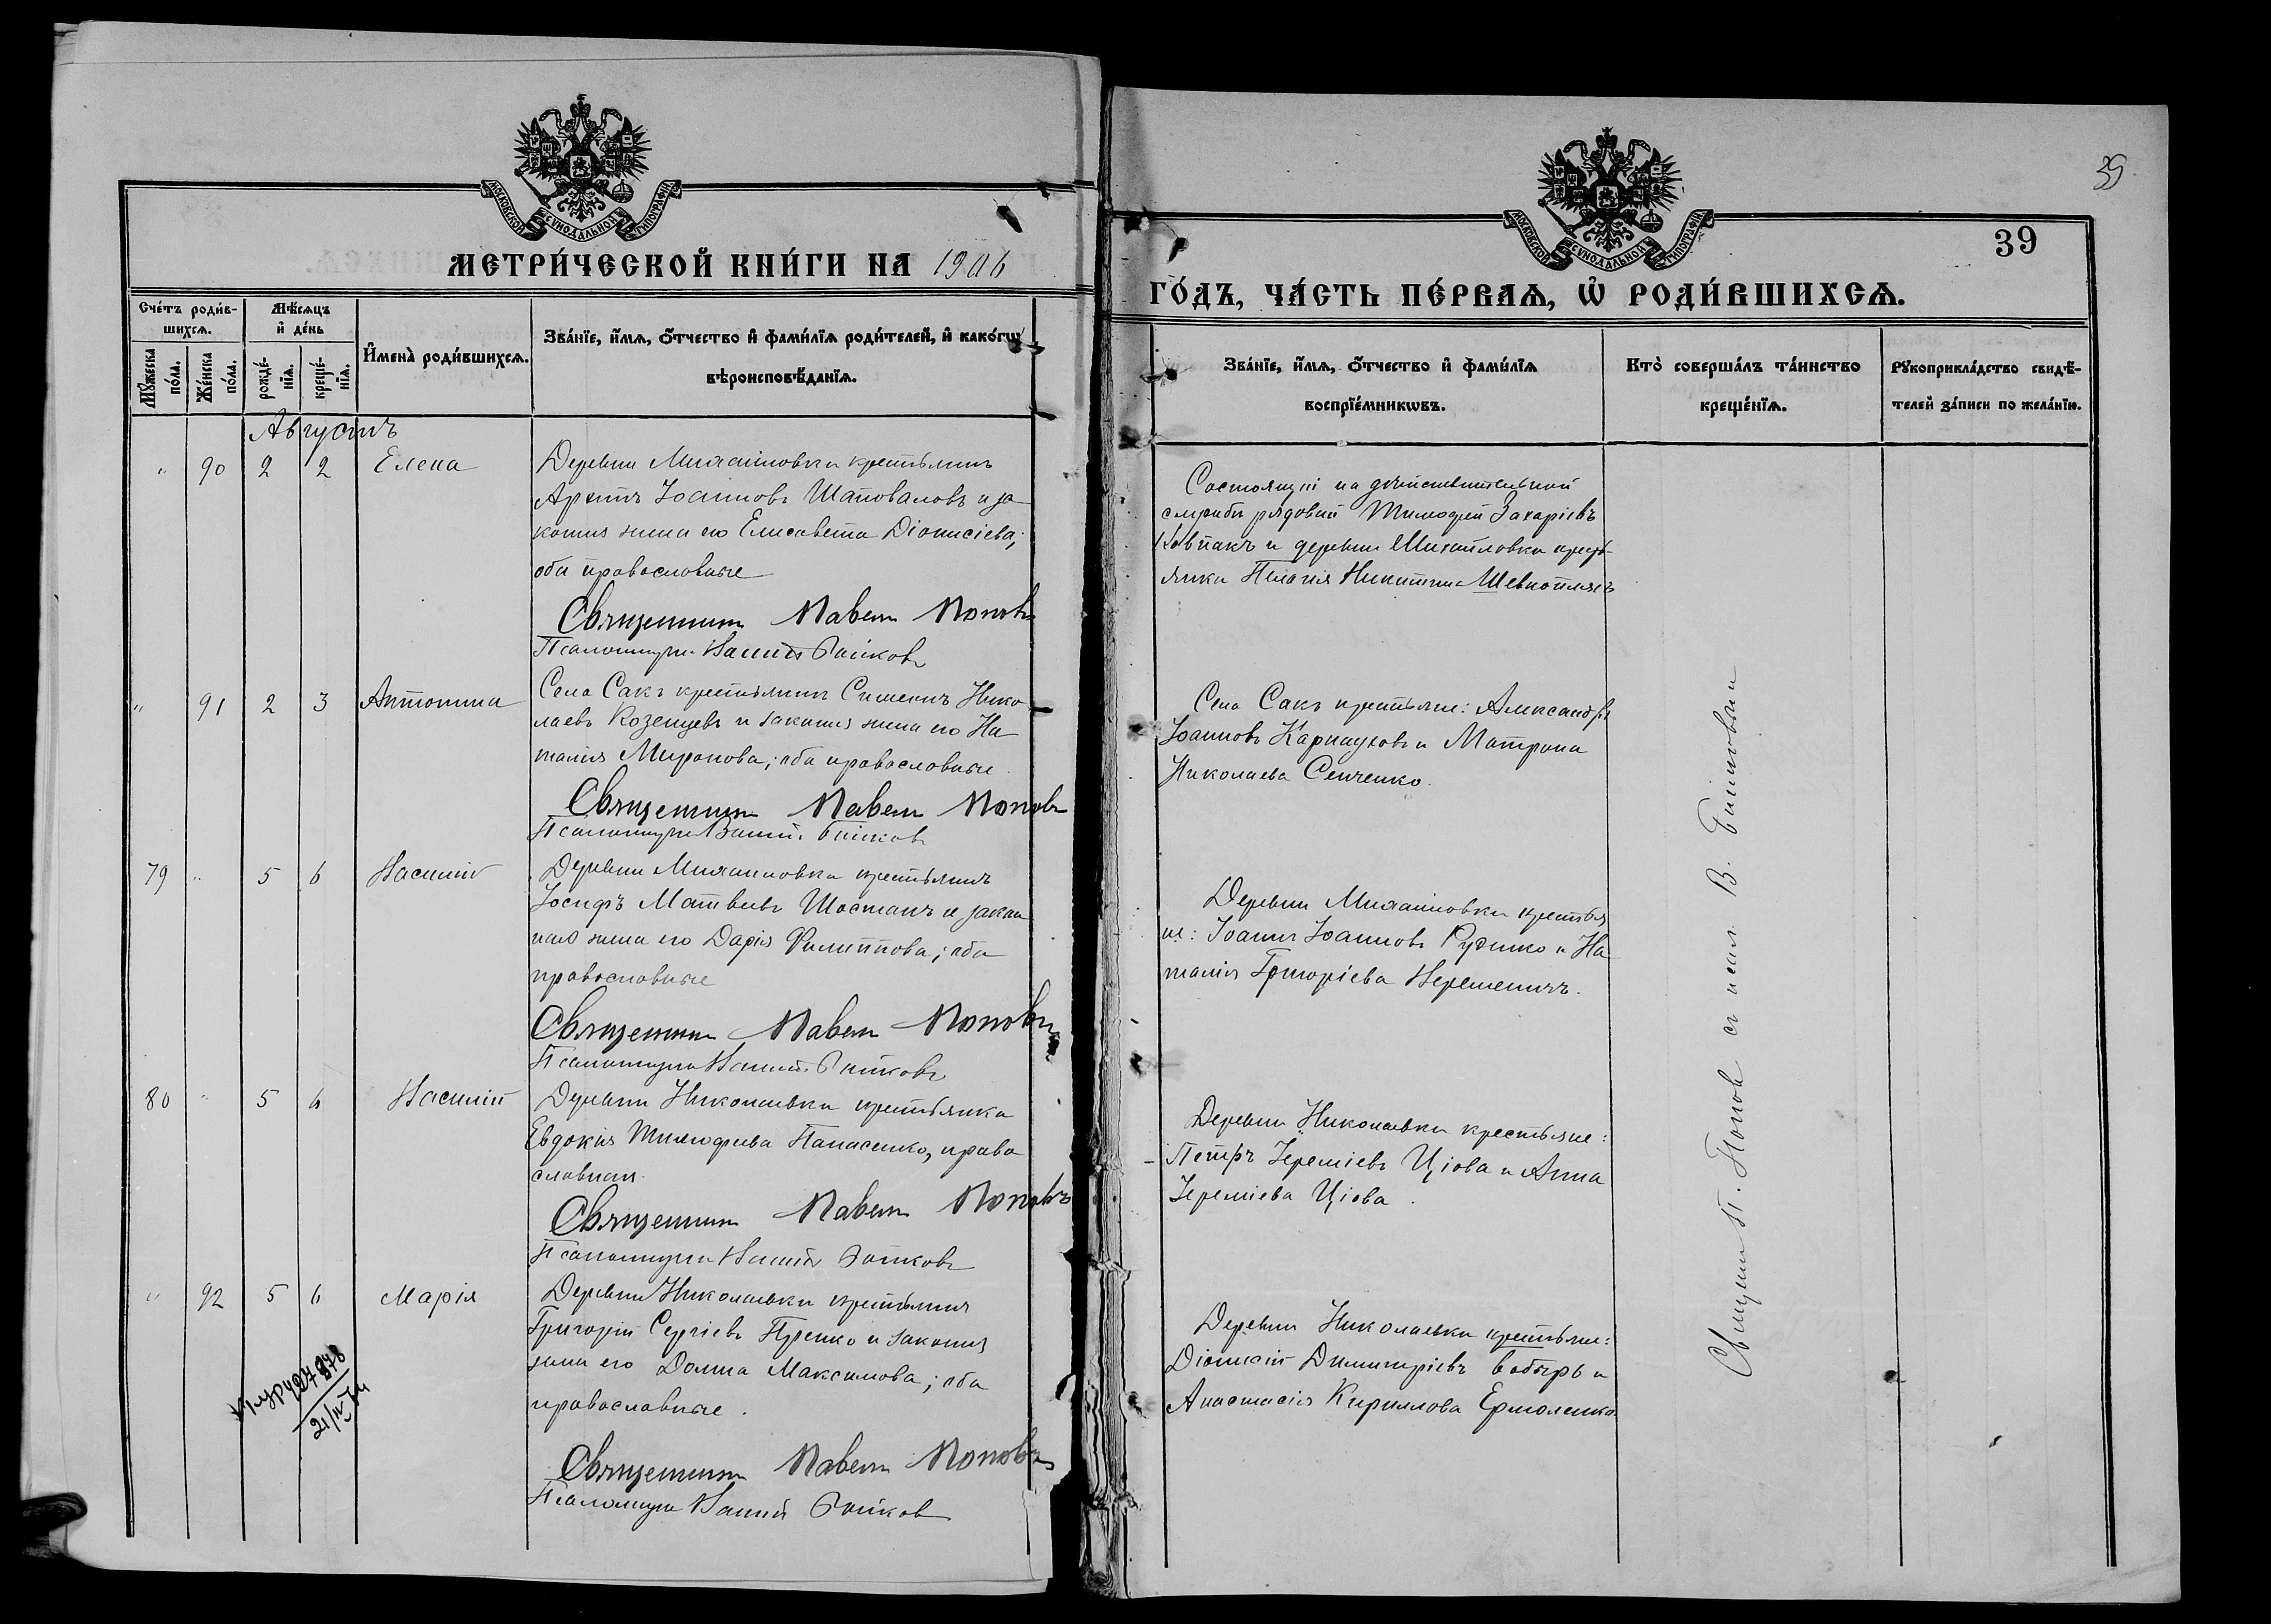 МОСКОВСКОЙ СѴНОДАЛЬНОЙ ТИПОГРАФІИ
МЕТРИ́ЧЕСКОЙ КНИ́ГИ НА 1906
Сче́тъ роди́в-
шихсѧ.
Мѣ́сѧцъ
и҆ де́нь
Мꙋ́жеска
по́ла.
Же́нска
по́ла.
рожде́-
нїѧ.
креще́-
нїѧ.
И҆мена̀ роди́вшихсѧ.
Зва́нїе, и҆́мѧ, ѻ҆́тчество и҆ фами́лїѧ роди́телей, и҆ како́гѡ
вѣроисповѣ́данїѧ.
Августъ
" 90 2 2 Елена
Деревни Михайловки крестьянинъ
Архипъ Іоанновъ Шаповаловъ и за-
конная жена его Елисавета Діонисіева;
оба православные
Священникъ Павелъ Поповъ
Псаломщикъ Василій
" 91 2 3 Антонина
Села Сакъ крестьянинъ Симеонъ Нико-
лаевъ Козенцевъ и законная жена его На-
талія Миронова; оба православные
Священникъ Павелъ Поповъ
Псаломщикъ Василій
79 " 5 6 Василій
Деревни Михайловки крестьянинъ
Іосифъ Матвѣевъ Шостакъ и закон-
ная жена его Дарія Филиппова; оба
православные
Священникъ Павелъ Поповъ
Псаломщикъ Василій
80 " 5 6 Василій
Деревни Николаевки крестьянка
Евдокія Тимофеева Панасенко, право-
славная.
Священникъ Павелъ Поповъ
Псаломщикъ Василій
" 92 5 6 Марія
Деревни Николаевки крестьянинъ
Григорій Сергіевъ и законная
жена его Домна Максимова; оба
православные.
Священникъ Павелъ Поповъ
Псаломщикъ Василій
21/IV
39
39
МОСКОВСКОЙ СѴНОДАЛЬНОЙ ТИПОГРАФІИ
ГО́ДЪ, ЧА́СТЬ ПЕ́РВАѦ, Ѡ҆ РОДИ́ВШИХСѦ.
Зва́нїе, и҆́мѧ, ѻ҆́тчество и҆ фами́лїѧ
воспрїе́мникѡвъ.
Кто̀ соверша́лъ та́инство
креще́нїѧ.
Рꙋкоприкла́дство свидѣ́-
телей за́писи по жела́нїю.
Состоящій на дѣйствительной
службѣ рядовой Тимофей Захаріевъ
Ковпакъ и деревни Михайловки кресть-
янка Пелагія Никитина Шевкоплясъ
Села Сакъ крестьяне: Александръ
Іоанновъ Карнауховъ и Матрона
Николаева Сенченко.
Деревни Михайловки крестья-
не: Іоаннъ Іоанновъ Руденко и На-
талія Григоріева Веремеичъ.
Деревни Николаевки крестьяне:
Петръ Іереміевъ Ціова и Анна
Іереміева Ціова.
Деревни Николаевки крестьяне:
Діонисій Димитріевъ Бобырь и
Анастасія Кириллова Ермоленко.
Священ. П. Поповъ съ псал. В.